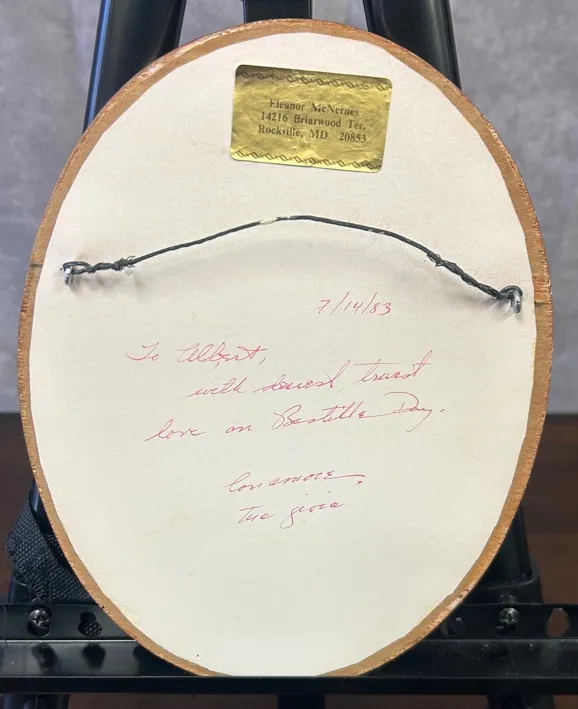 Eleanor McNerney
14216 Briarwood Ter.
Rockville, MD 20853
7/14/83
To Albert,
with dearest, truest
love on Bastille Day.
Con amore,
Tua gioia